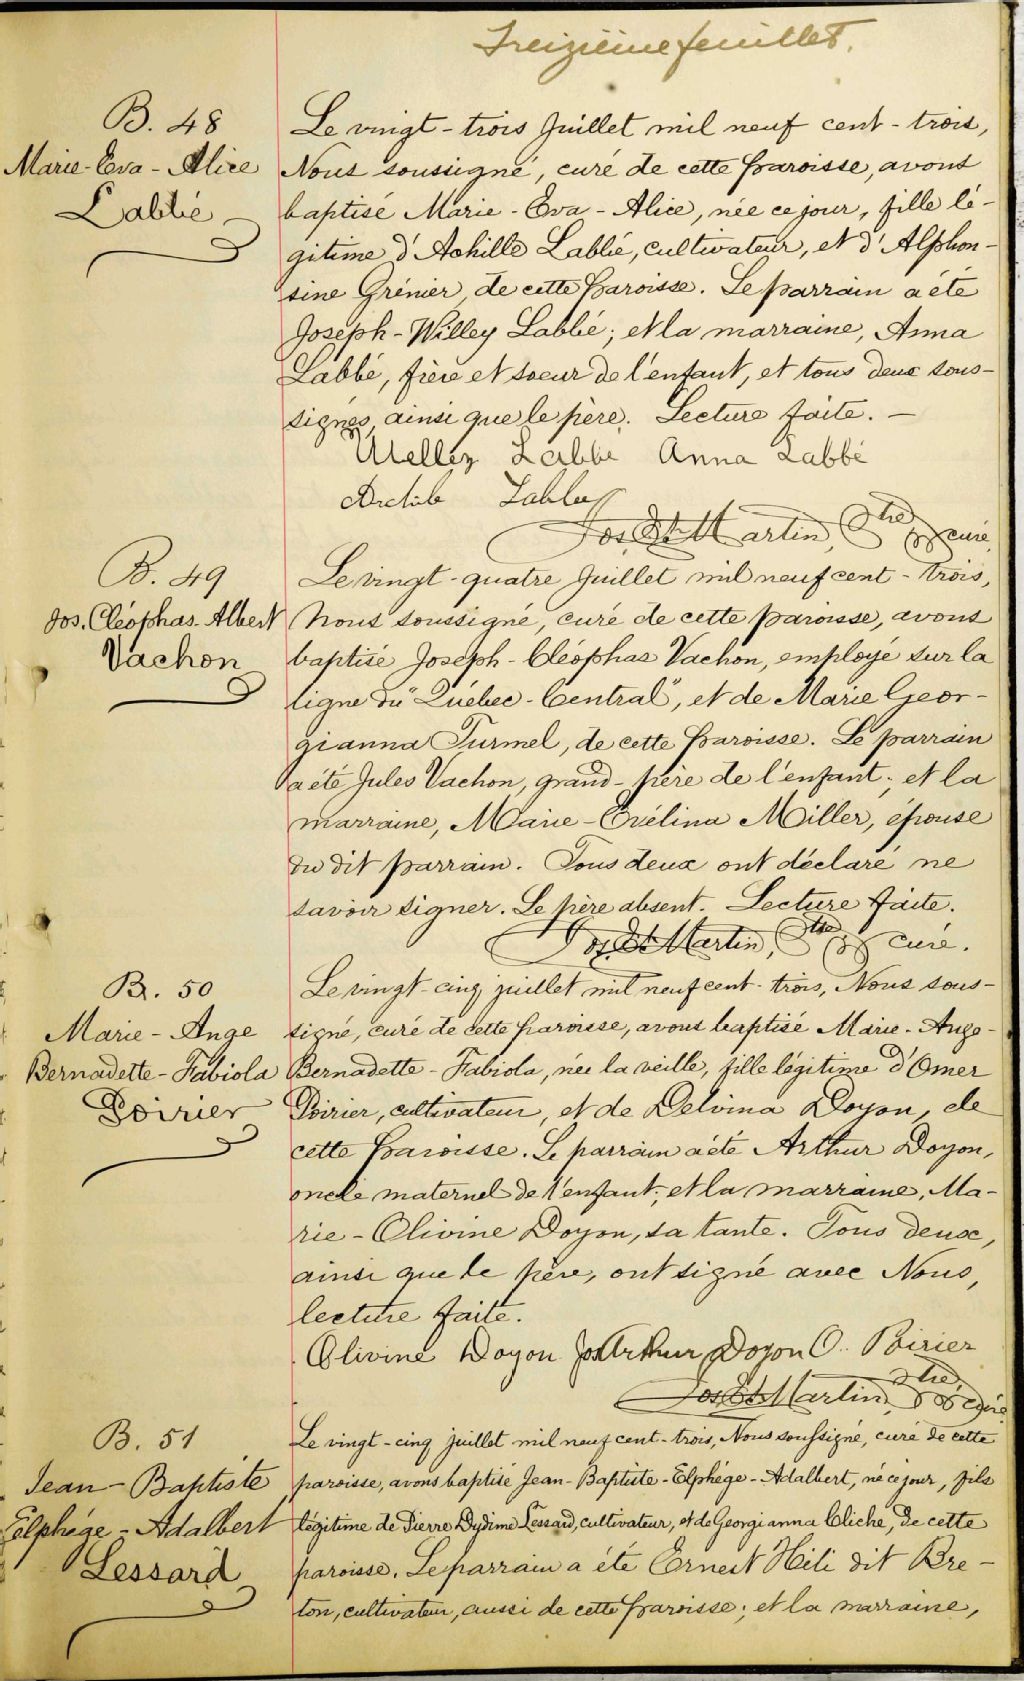 Treizième feuillet.
B. 48
Marie-Eva-Alice
Labbé
Le vingt-trois Juillet mil neuf cent-trois,
Nous soussigné, curé de cette paroisse, avons
baptisé Marie-Eva-Alice, née ce jour, fille lé-
gitime d'Achille Labbé, cultivateur, et d'Alphon-
sine Grénier, de cette paroisse. Le parrain a été
Joseph-Willey Labbé; et la marraine, Anna
Labbé, frère et soeur de l'enfant, et tous deux sous-
signés, ainsi que le père. Lecture faite. —
Welley Labbé Anna Labbé
Labbé
Jos. Martin, Ptre curé.
B. 49
Jos. Cléophas-Albert
Vachon
Le vingt-quatre Juillet mil neuf cent-trois,
Nous soussigné, curé de cette paroisse, avons
baptisé Joseph-Cléophas Vachon, employé sur la
ligne du "Québec-Central", et de Marie Geor-
gianna Turmel, de cette paroisse. Le parrain
a été Jules Vachon, grand-père de l'enfant; et la
marraine, Marie-Evélina Miller, épouse
du dit parrain. Tous deux ont déclaré ne
savoir signer. Le père absent. Lecture faite.
Jos. Martin, Ptre curé.
B. 50
Marie-Ange
Bernadette-Fabiola
Poirier
Le vingt-cinq juillet mil neuf cent-trois, Nous sous-
signé, curé de cette paroisse, avons baptisé Marie-Ange-
Bernadette-Fabiola, née la veille, fille légitime d'Omer
Poirier, cultivateur, et de Delvina Doyon, de
cette paroisse. Le parrain a été Arthur Doyon,
oncle maternel de l'enfant; et la marraine, Ma-
rie-Olivine Doyon, sa tante. Tous deux,
ainsi que le père, ont signé avec Nous,
lecture faite.
Olivine Doyon Jos Arthur Doyon O. Poirier
Jos. Martin, Ptre, curé
B. 51
Jean-Baptiste
Elphége-Adalbert
Lessard
Le vingt-cinq juillet mil neuf cent-trois, Nous soussigné, curé de cette
paroisse, avons baptisé Jean-Baptiste-Elphége-Adalbert, né ce jour, fils
légitime de Pierre Dydime Lessard, cultivateur, et de Georgianna Cliche, de cette
paroisse. Le parrain a été Ernest Héli dit Bre-
ton, cultivateur, aussi de cette paroisse; et la marraine,